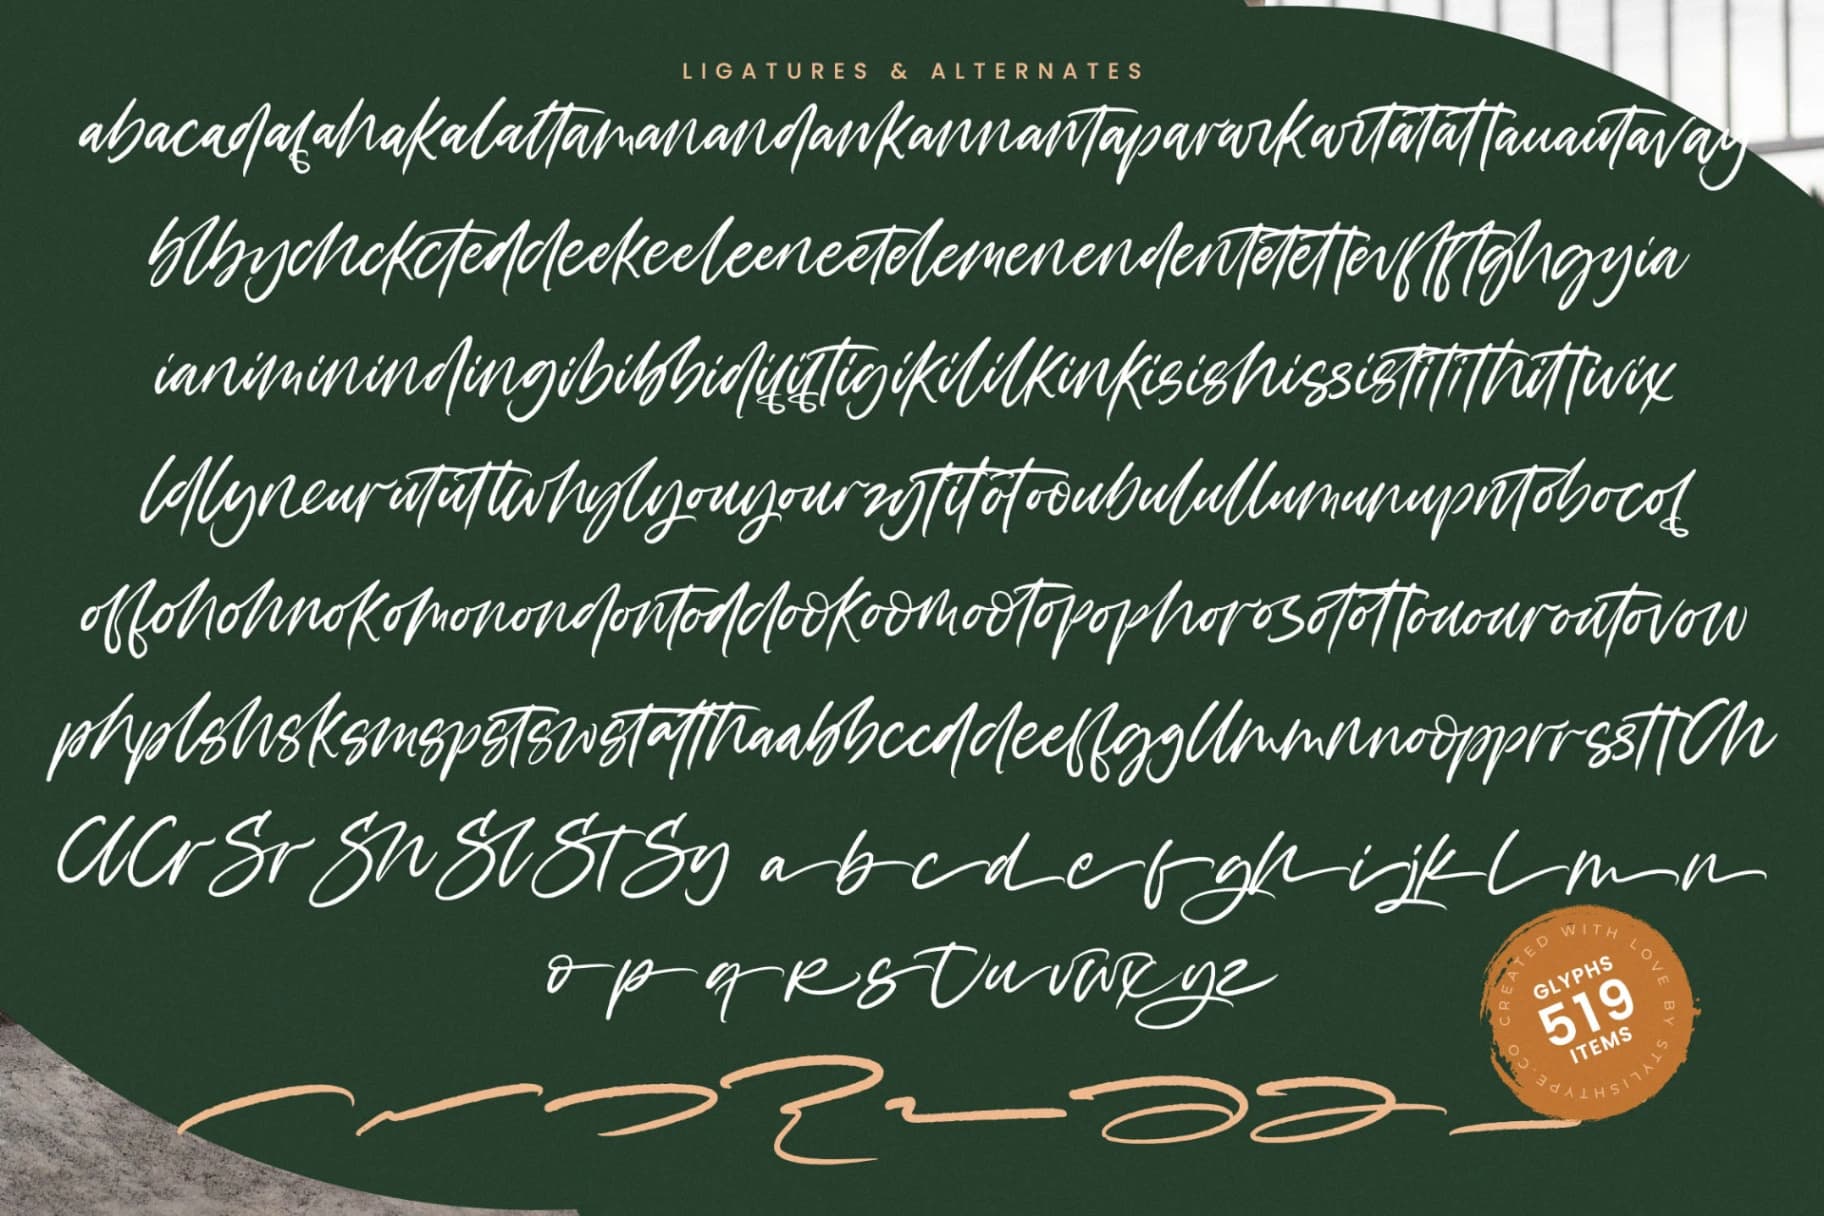 LIGATURES & ALTERNATES
abacadafahakalattamanandankannantapararkartatattauautavay
blbychckcteddeekeeleeneetelemenendentetettevffftghgyia
ianiminindingibibbidififtigikililkinkisishississtitithittiwix
ldlyneurututtwhylyouyourzytitotooubulullumunupntobocof
offohohnokomonondontoddookoomootopophorosotottououroutovow
phplshsksmspstswstatthaabbccddeeffggllmmnnooopprrssttCh
ClCrSrShSlStSy abcdefghijklmn
opqrstuvwxyz
CREATED WITH LOVE BY STYLISHTYPE.CO
GLYPHS
519
ITEMS